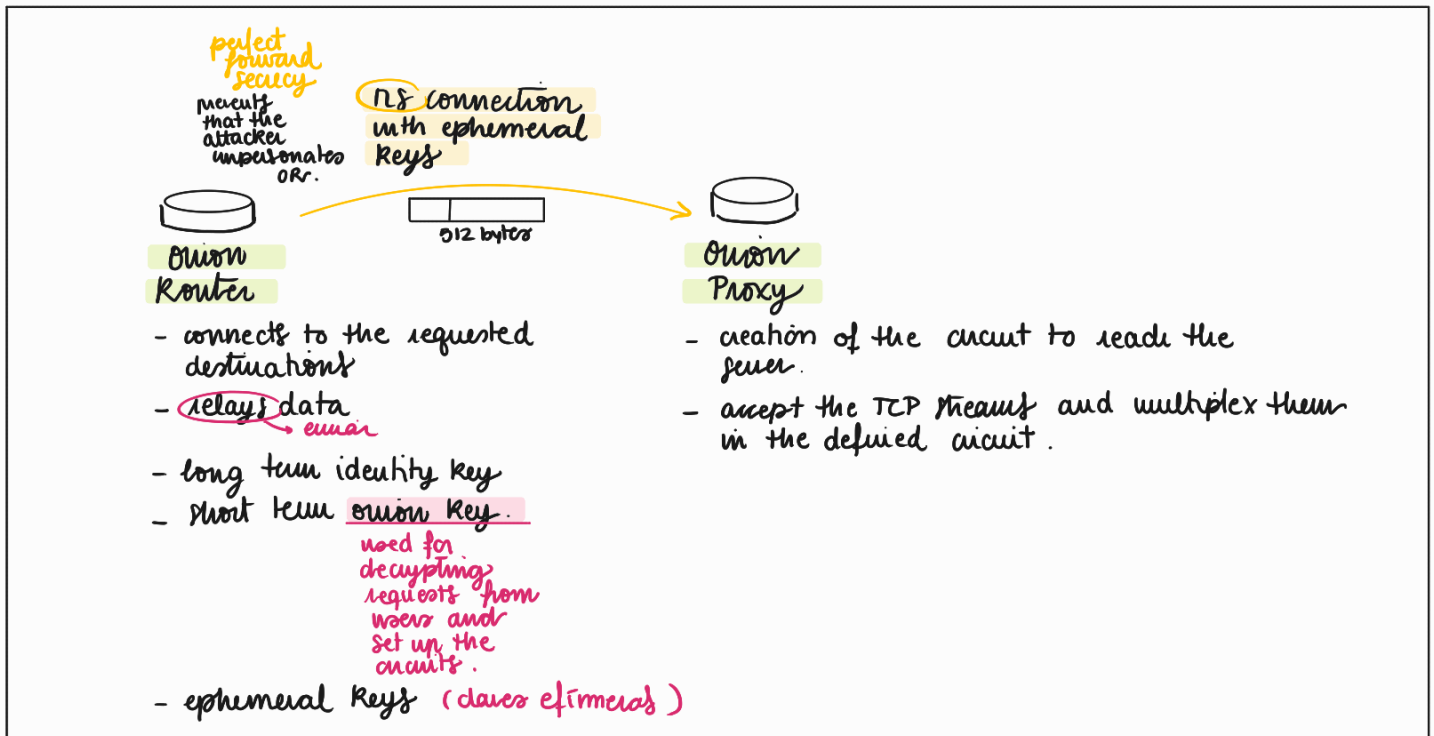 perfect
forward
secrecy
prevents
that the
attacker
impersonates
OR.
TLS connection
with ephemeral
keys
512 bytes
Onion
Router
- connects to the requested
destinations
- relays data
enviar
- long term identity key
- short term onion key.
used for
decrypting
requests from
users and
set up the
circuits.
- ephemeral keys (claves efímeras)
Onion
Proxy
- creation of the circuit to reach the
server.
- accept the TCP streams and multiplex them
in the defined circuit.